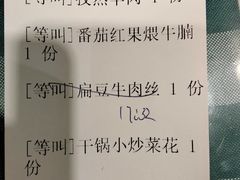 [等叫]番茄红果煨牛腩
1 份
[等叫]扁豆牛肉丝 1 份
[等叫]干锅小炒菜花 1
份